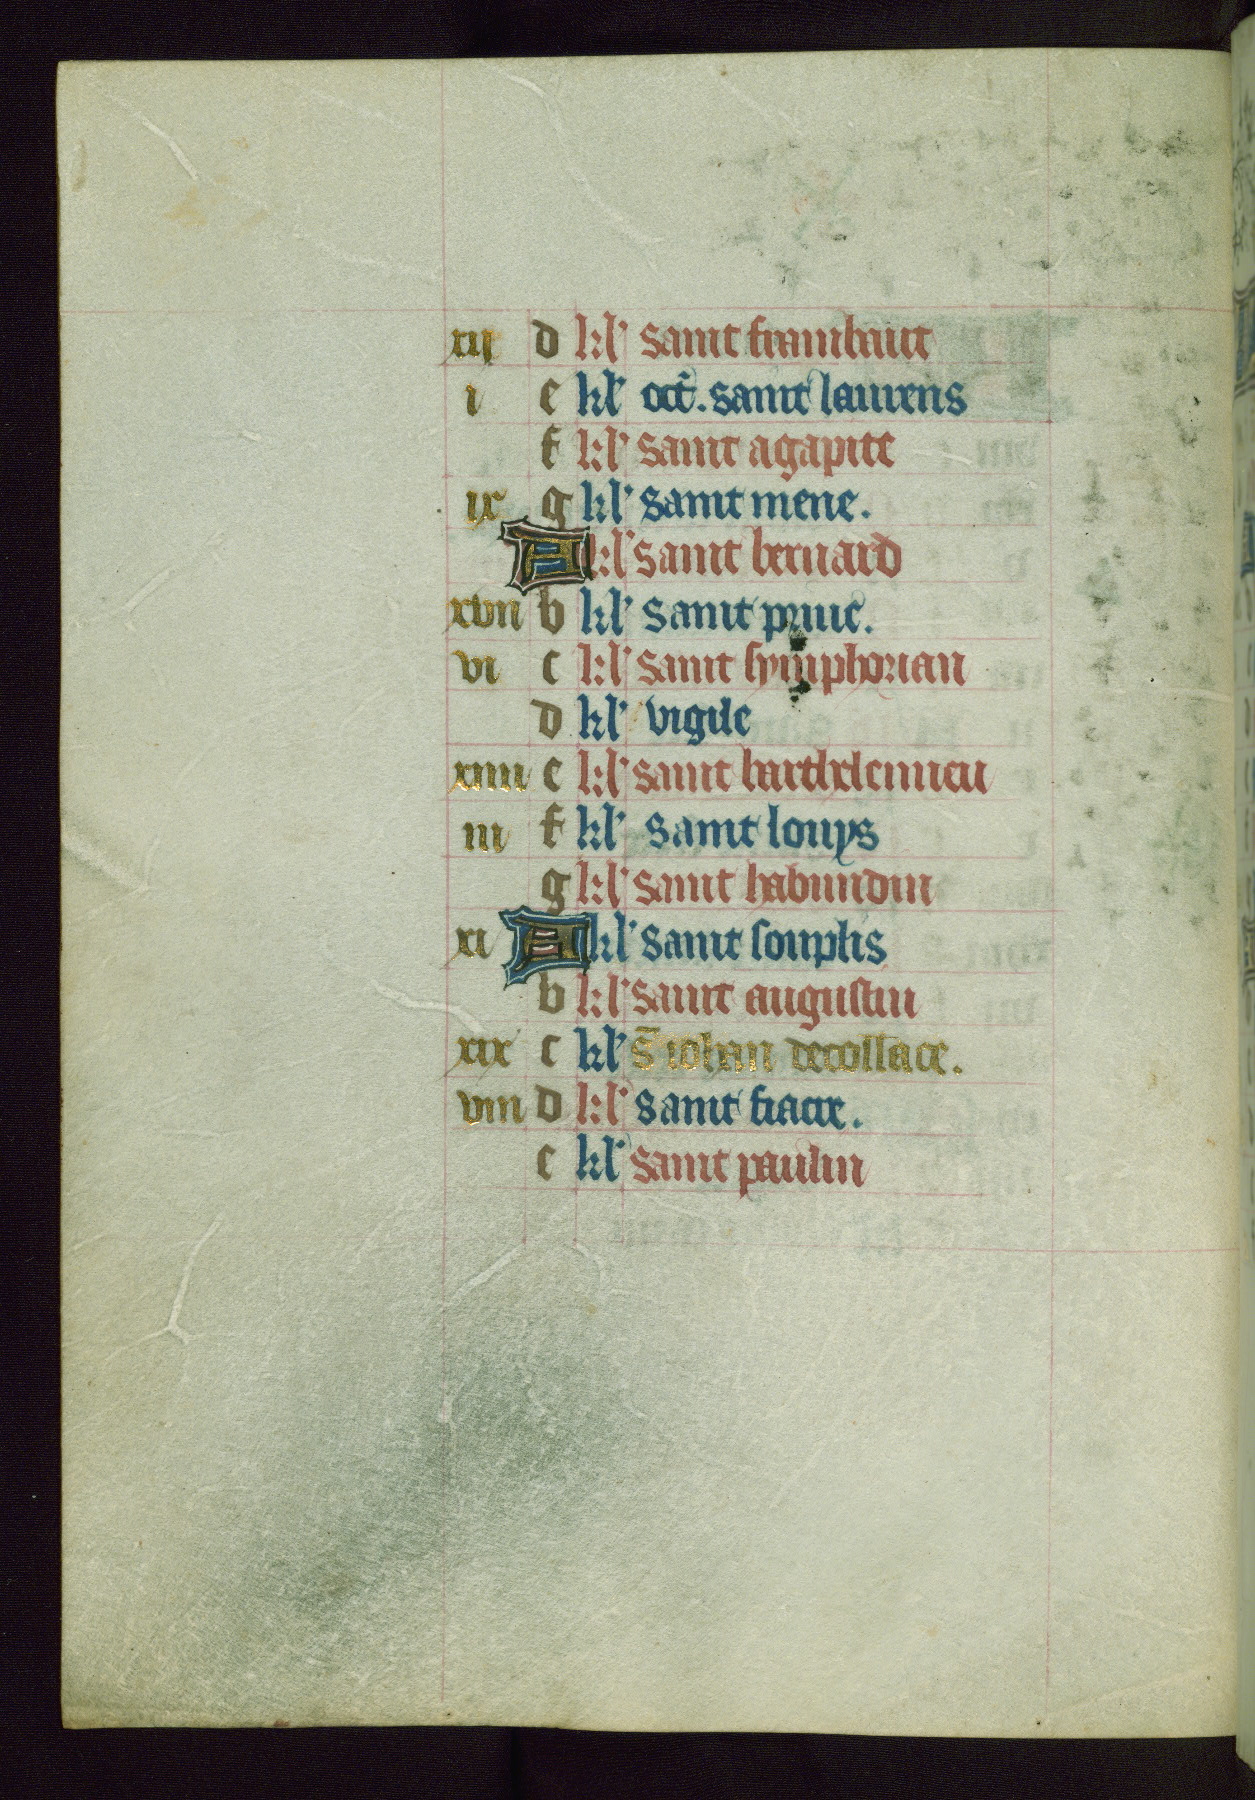 xii d kl' saint frambaut
i e kl' oct̄. saint laurens
f kl' saint agapite
ix g kl' saint mene.
A kl' saint bernard
xvii b kl' saint priue.
vi c kl' saint symphorian
d kl' vigile
xiiii e kl' saint barthelemieu
iii f kl' saint louys
g kl' saint habundin
xi A kl' saint souplis
b kl' saint augustin
xix c kl' S̄ iohan decollace.
viii d kl' saint fiacre.
e kl' saint paulin